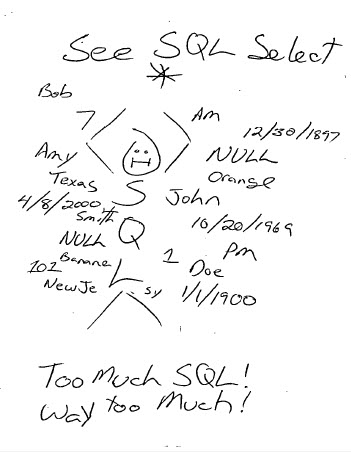 See SQL Select
*
Bob
7
Am
12/30/1897
Amy
NULL
Texas
Orange
4/8/2000
S
John
Smith
10/20/1969
NULL
Q
Pm
Banana
1
101
Doe
L
NewJe sy
1/1/1900
Too Much SQL!
Way too Much!